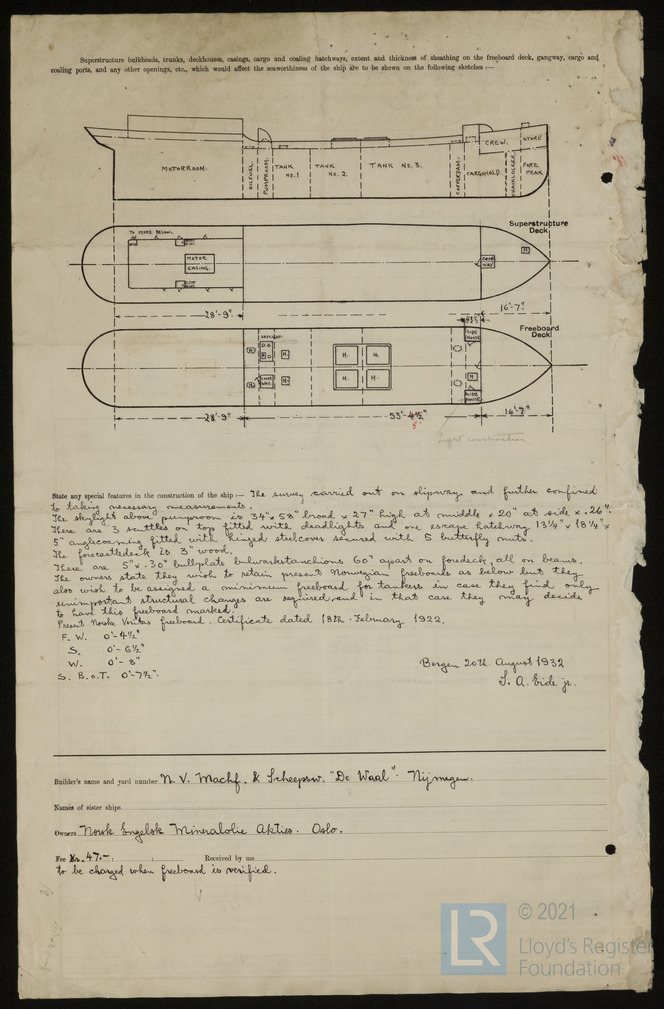 Superstructure bulkheads, trunks, deckhouses, casings, cargo and coaling hatchways, extent and thickness of sheathing on the freeboard deck, gangway, cargo and
coaling ports, and any other openings, etc., which would affect the seaworthiness of the ship are to be shown on the following sketches:—
MOTORROOM.
OILFUEL.
PUMPROOM.
TANK No. 1
TANK No. 2.
TANK No. 3.
COFFERDAM.
CARGOHOLD.
CREW.
CHAINLOCKER.
STORE
FORE PEAK
Superstructure
Deck
TO MORE BELOW.
MOTOR
CASING.
H
28'-9"
16'-7"
Freeboard
Deck
SKYLIGHT
H H
H H
28'-9"
53'-4½"
5"
16'-7"
State any special features in the construction of the ship:— The survey carried out on slipway and further confined
to taking necessary measurements.
The skylight above pumproom is 34" x 58" broad x 27" high at middle x 20" at side x .26".
There are 3 scuttles on top fitted with deadlights and one escape hatchway 13¼" x 18¼" x
5" anglecoaming fitted with hinged steelcover secured with 5 butterfly nuts.
The forecastledeck is 3" wood.
There are 5" x .30" bulbplate bulwarkstanchions 60" apart on foredeck, all on beams.
The owners state they wish to retain present Norwegian freeboards as below but they
also wish to be assigned a minimum freeboard for tankers in case they find only
unimportant structural changes are required and in that case they may decide
to have this freeboard marked.
Present Norske Veritas freeboard. Certificate dated 18th. February 1922.
F. W. 0'-4½"
S. 0'-6½"
W. 0'-8"
S. B.o.T. 0'-7½".
Bergen 20th. August 1932
S. A. Eide jr.
Builder's name and yard number N. V. Machf. & Scheepsw. "De Waal". Nijmegen.
Names of sister ships
Owners Norsk Engelsk Mineralolie Akties. Oslo.
Fee Kr. 47.-: : Received by me
to be charged when freeboard is verified.
LR
© 2021
Lloyd's Register
Foundation